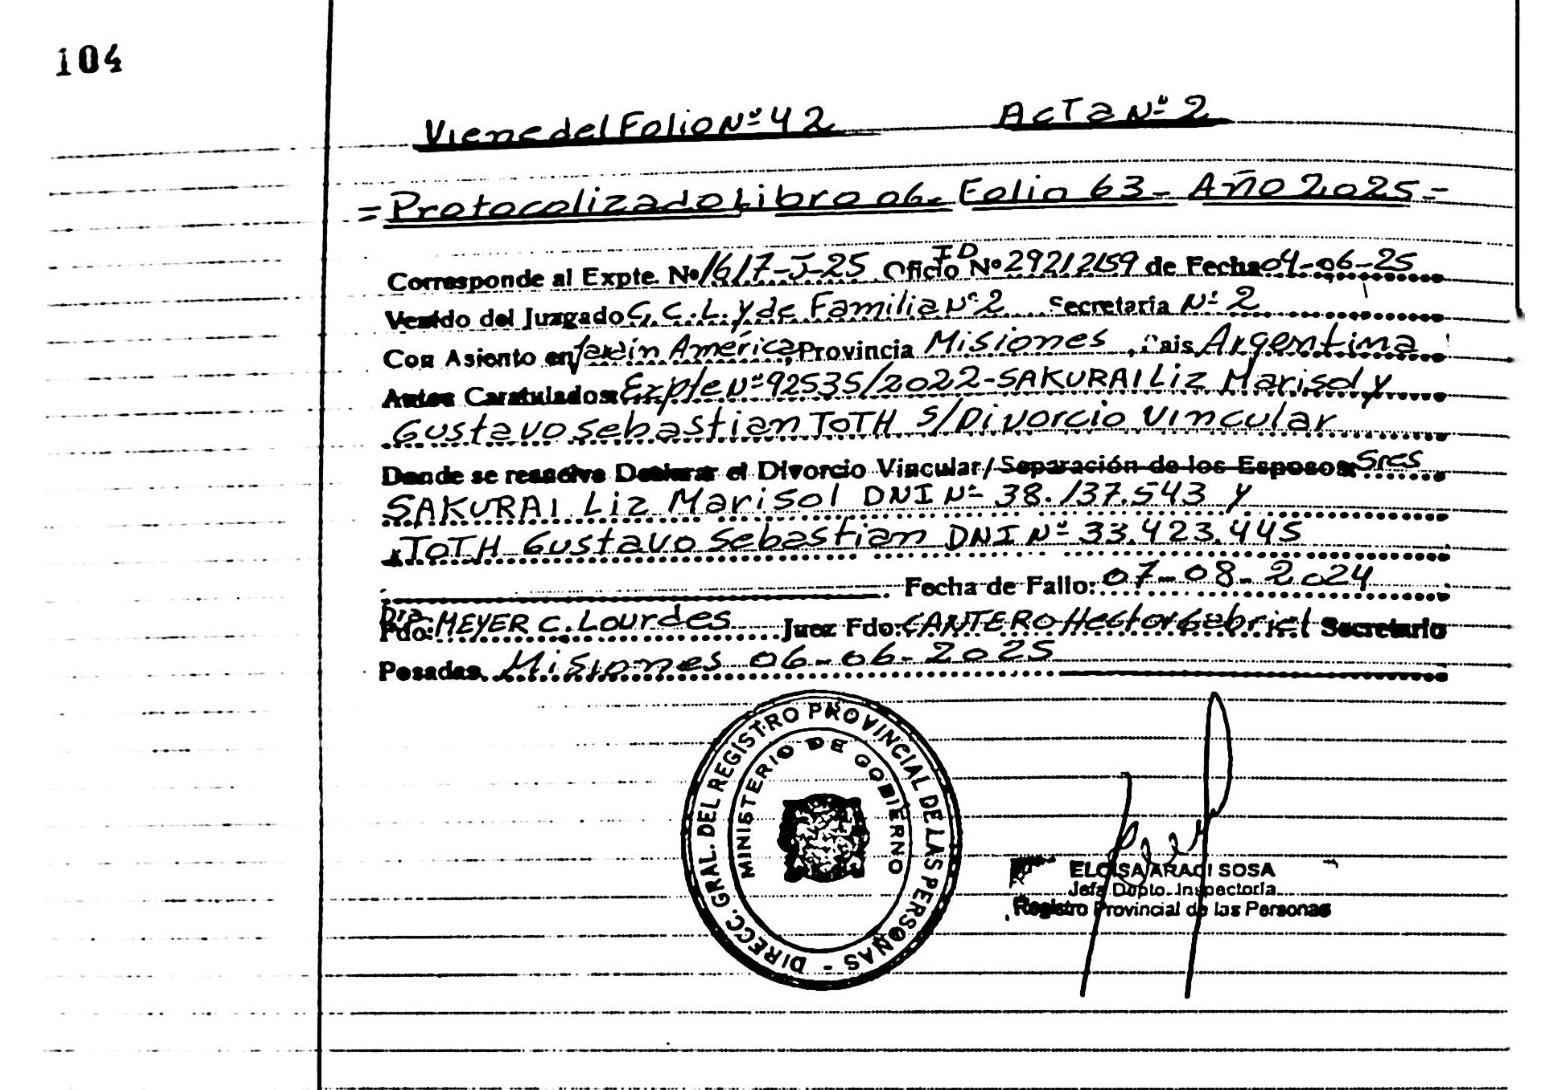 104
Viene del Folio Nº 42 Acta Nº 2
= Protocolizado Libro 06. Folio 63 - Año 2025 =
Corresponde al Expte. Nº 1617-J-25 Oficio ID Nº 29212159 de Fecha 04-06-25
Venido del Juzgado C. C. L. y de Familia Nº 2 Secretaría Nº 2
Con Asiento en Jardín América, Provincia Misiones, Pais Argentina
Autos Caratulados: Expte Nº 92535/2022-SAKURAI Liz Marisol y
Gustavo Sebastian TOTH S/Divorcio Vincular
Donde se resuelve Declarar el Divorcio Vincular/Separación de los Esposos: Sres
SAKURAI Liz Marisol DNI Nº 38.137.543 y
TOTH Gustavo Sebastian DNI Nº 33.423.445
Fecha de Fallo: 07-08-2024
Fdo: Dra MEYER C. Lourdes Juez Fdo: CANTERO Hector Gabriel Secretario
Posadas, Misiones 06-06-2025
DIRECC. GRAL. DEL REGISTRO PROVINCIAL DE LAS PERSONAS -
MINISTERIO DE GOBIERNO
ELOISA ARACI SOSA
Jefa Dpto. Inspectoria
Registro Provincial de las Personas